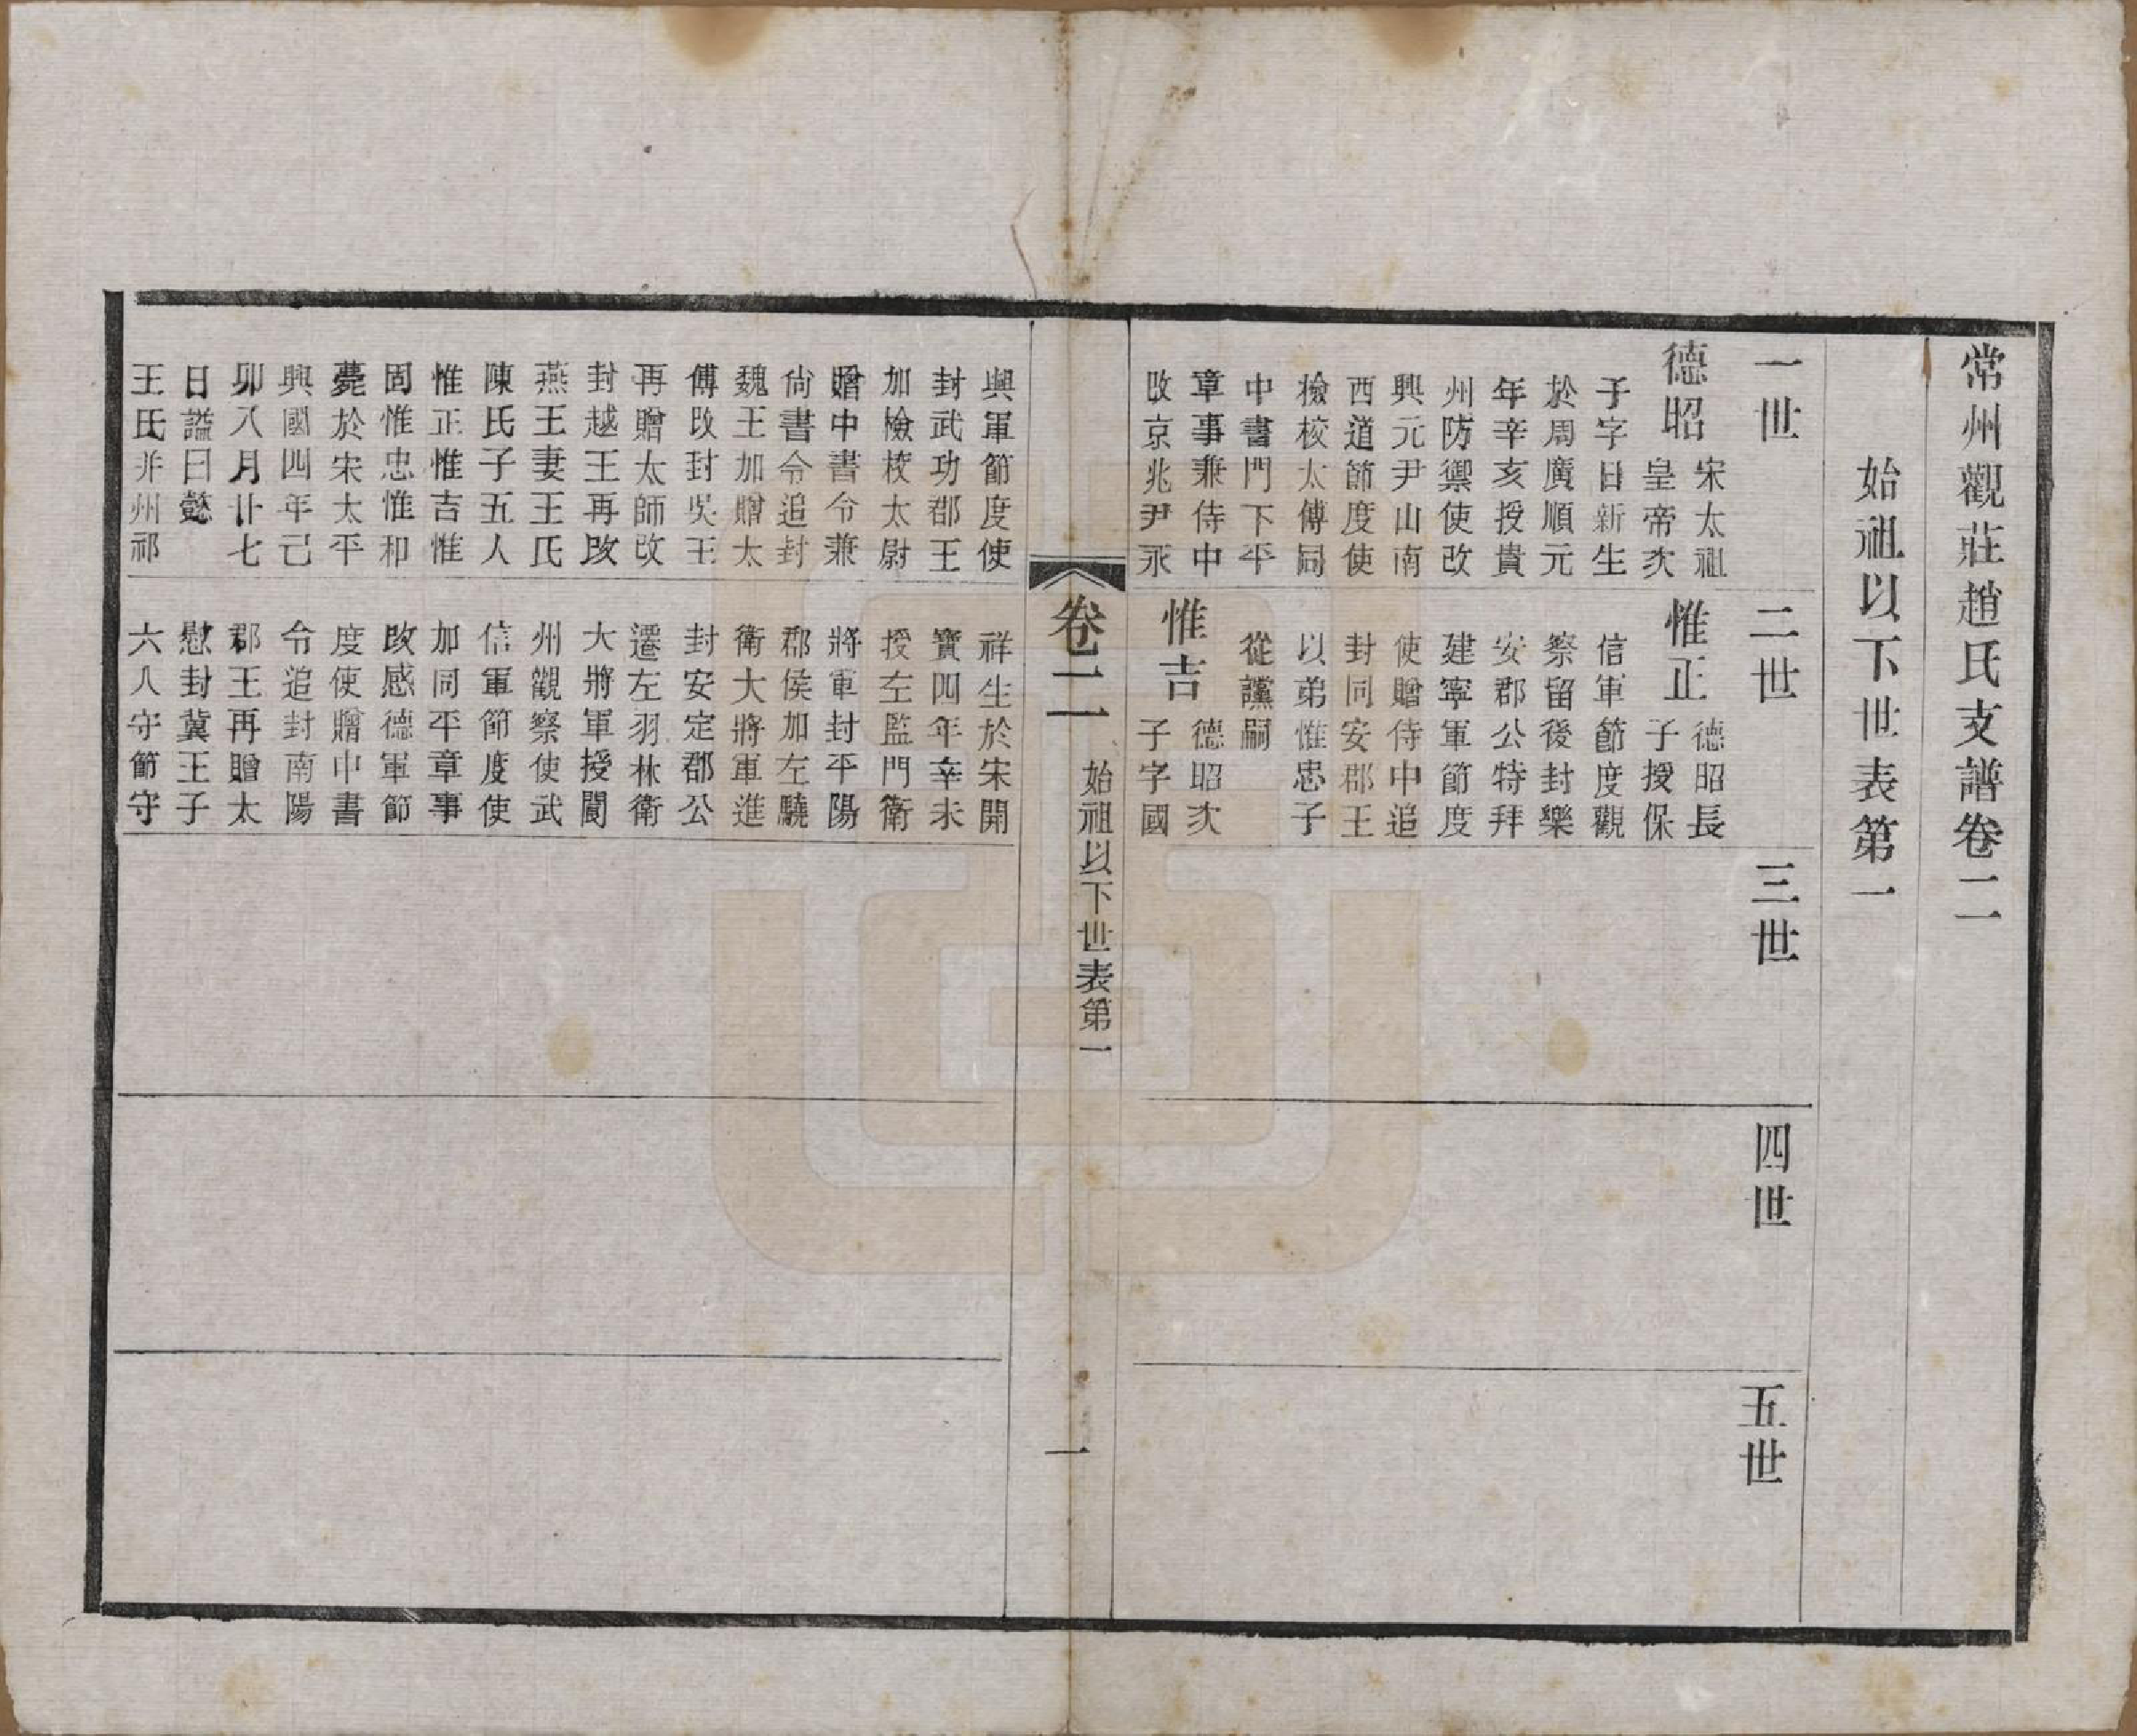 常州觀莊趙氏支譜卷二
始祖以下世表第一
一世
二世
三世
四世
五世
德昭
宋太祖
皇帝次
子字日新生
於周廣順元
年辛亥授貴
州防禦使改
興元尹山南
西道節度使
檢校太傅同
中書門下平
章事兼侍中
改京兆尹永
惟正
德昭長
子授保
信軍節度觀
察留後封樂
安郡公特拜
建寧軍節度
使贈侍中追
封同安郡王
以弟惟忠子
從讜嗣
惟吉
德昭次
子字國
卷二
始祖以下世表第一
一
興軍節度使
封武功郡王
加檢校太尉
贈中書令兼
尙書令追封
魏王加贈太
傅改封吳王
再贈太師改
封越王再改
燕王妻王氏
陳氏子五人
惟正惟吉惟
固惟忠惟和
薨於宋太平
興國四年己
卯八月廿七
日謚曰懿
王氏并州祁
祥生於宋開
寶四年辛未
授左監門衛
將軍封平陽
郡侯加左驍
衛大將軍進
封安定郡公
遷左羽林衛
大將軍授閬
州觀察使武
信軍節度使
加同平章事
改感德軍節
度使贈中書
令追封南陽
郡王再贈太
慰封冀王子
六人守節守